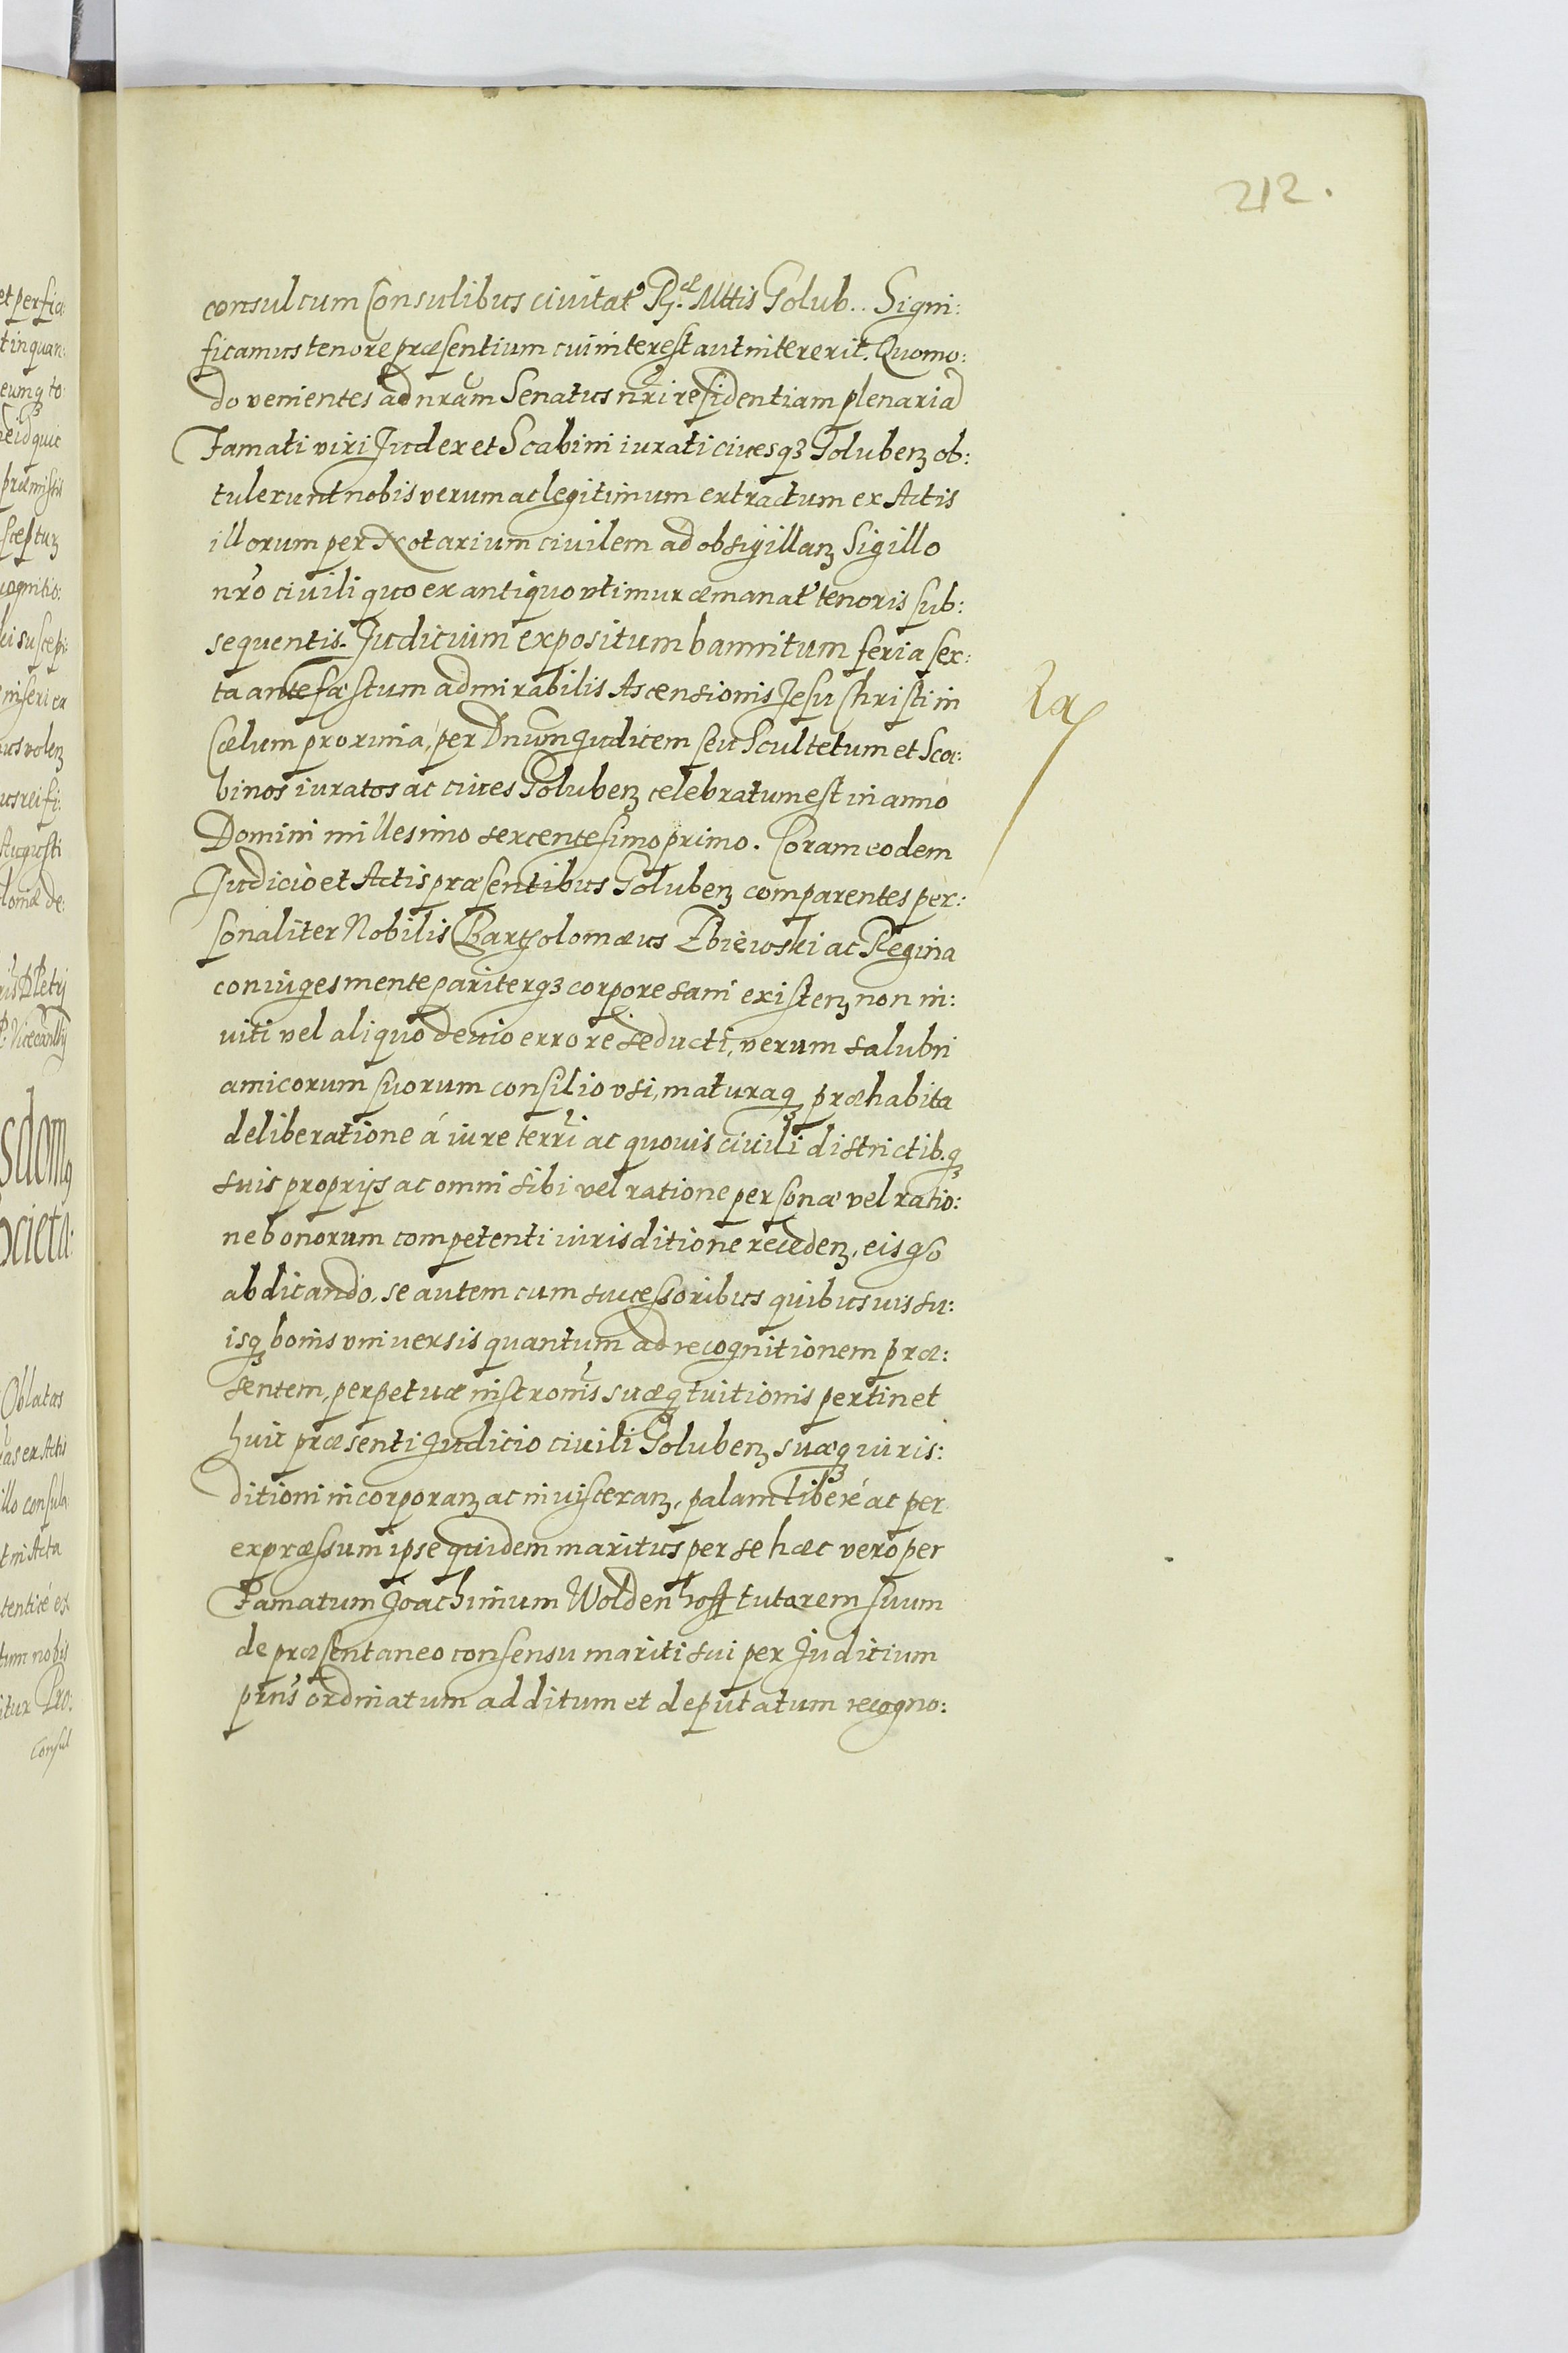 212.
consul cum Consulibus ciuitat' R. Mttis Golub.. Signi:
ficamus tenore præsentium cui interest aut intererit. Quomo:
do venientes ad nram Senatus nri residentiam plenaria
Famati viri Judex et Scabini iurati ciuesqꝫ Golubenꝫ ob:
tulerunt nobis verum ac legitimum extractum ex Actis
illorum per Notarium ciuilem ad obsigillanꝫ Sigillo
nro ciuili quo ex antiquo vtimur æmanat' tenoris sub:
sequentis. Judicium expositum bannitum feria sex:
ta ante fæstum admirabilis Ascensionis Jesu Christi in
Cælum proxima, per Dnum Judicem seu Scultetum et Sca:
binos iuratos ac ciues Golubenꝫ celebratum est in anno
Domini millesimo sexcentesimo primo. Coram eodem
Judicio et Actis præsentibus Golubenꝫ comparentes per:
sonaliter Nobilis Bartholomæus Zbiewski ac Regina
coniuges mente pariterqꝫ corpore sani existenꝫ non in:
uiti vel aliquo deuio errore seducti, verum salubri
amicorum suorum consilio vsi, maturaqꝫ præhabita
deliberatione á iure terri ac quouis ciuili districtib.qꝫ
suis proprijs ac omni sibi vel ratione personæ vel ratio:
ne bonorum competenti iurisditione recedenꝫ, eisqꝫ
abdicando, se autem cum successoribus quibusuis su:
isqꝫ bonis vniuersis quantum ad recognitionem præ:
sentem, perpetuæ inscronis suæqꝫ tuitionis pertinet
huic præsenti Judicio ciuili Golubenꝫ suæqꝫ iuris:
ditioni incorporanꝫ ac inuisceranꝫ, palam liberé ac per
expræssum ipse quidem maritus per se hæc vero per
Famatum Joachimum Woldenhoff tutorem suum
de præsentaneo consensu mariti sui per Judicium
prius ordinatum additum et deputatum recogno: